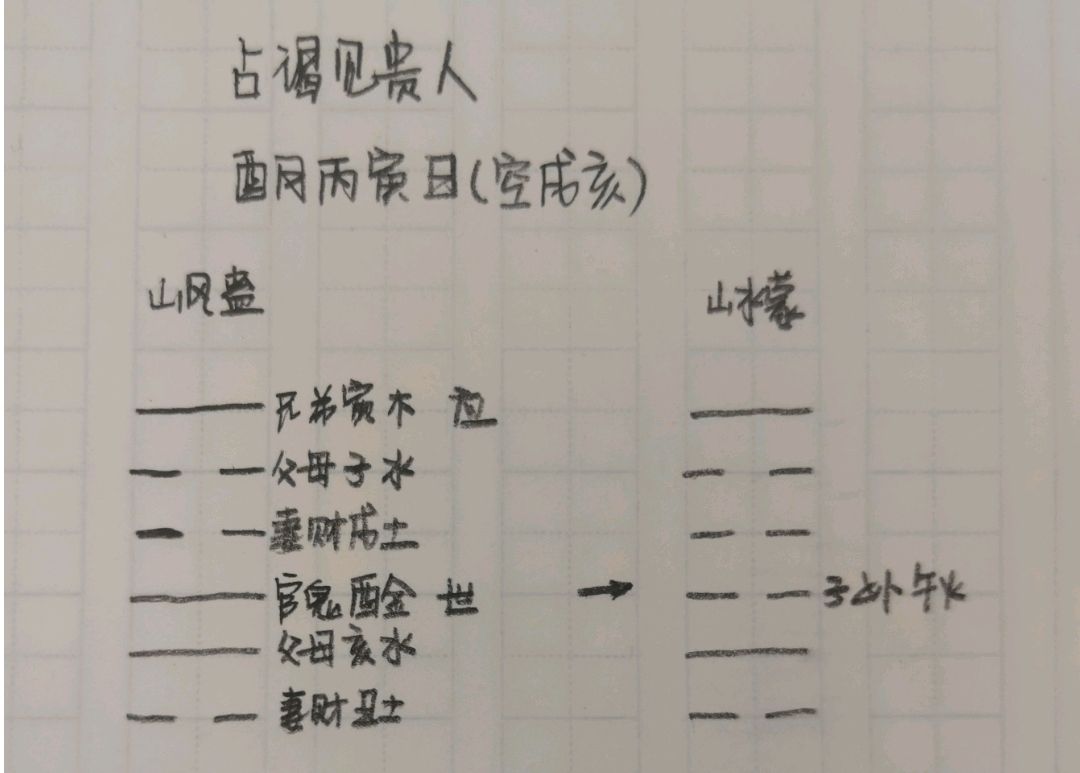 占谒见贵人
酉月丙寅日(空戌亥)
山风蛊 山水蒙
兄弟寅木 应
父母子水
妻财戌土
官鬼酉金 世 → 子孙午火
父母亥水
妻财丑土